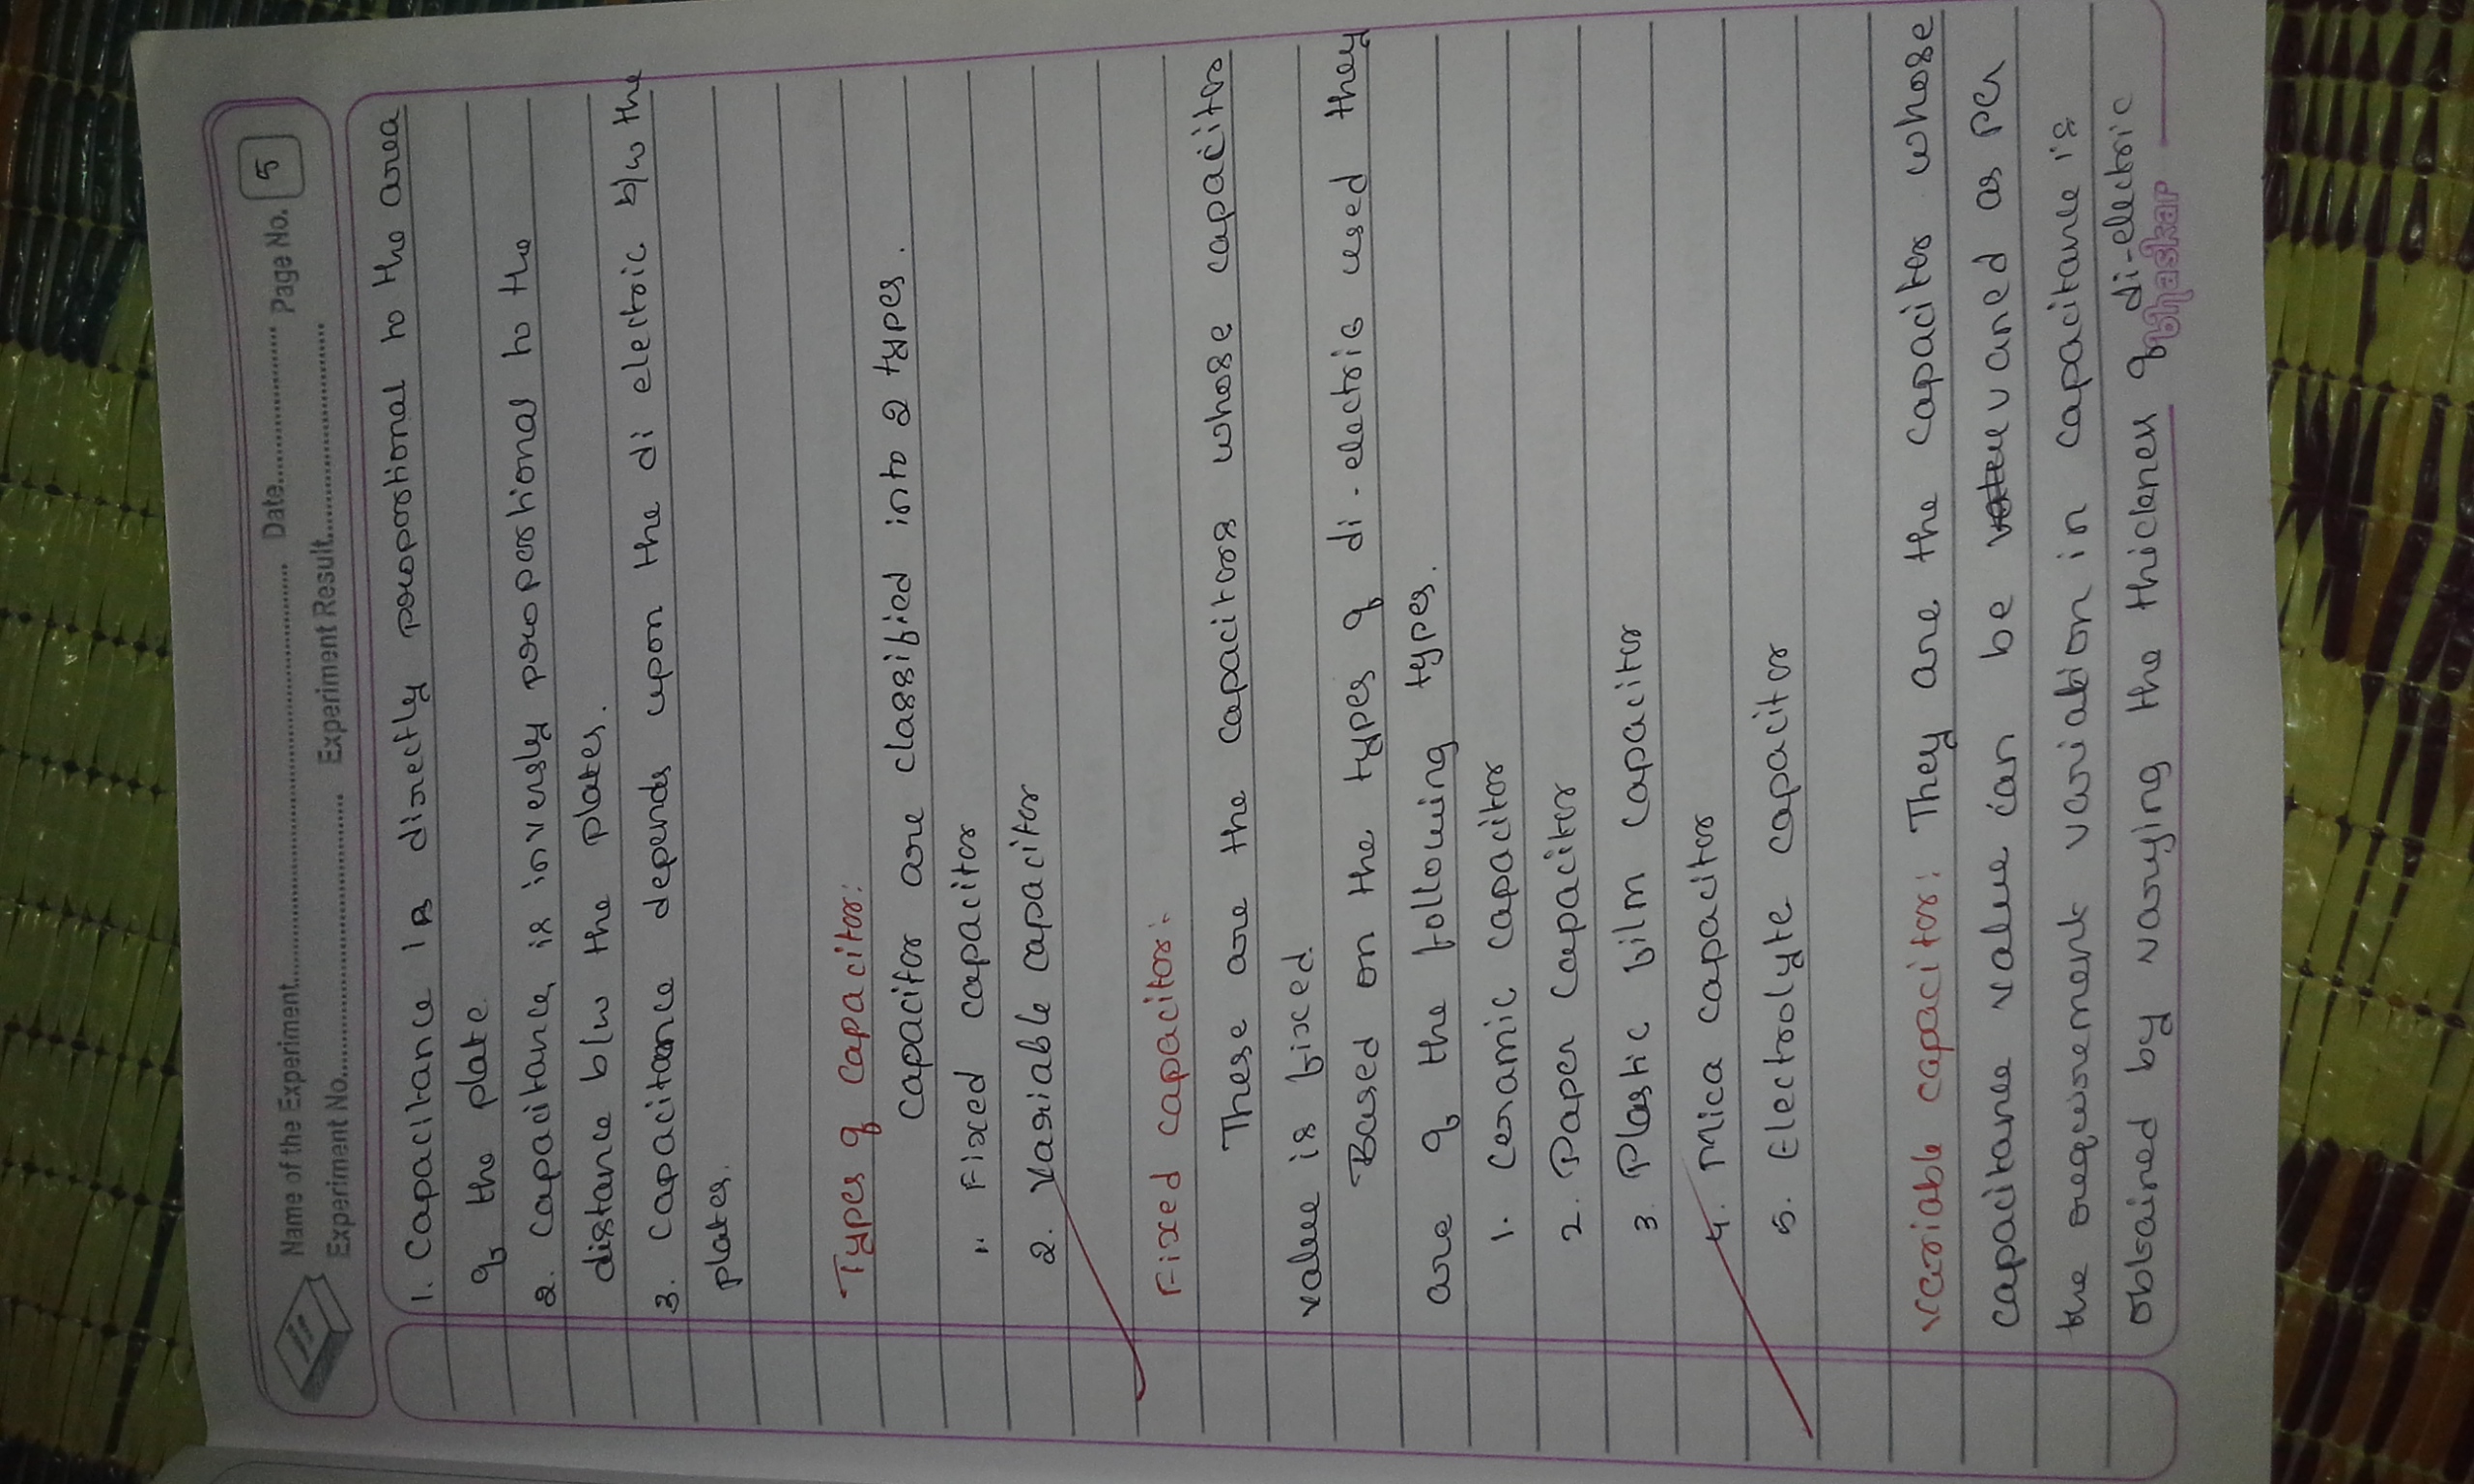 Name of the Experiment................ Date................ Page No. 5
Experiment No................ Experiment Result................
1. Capacitance is directly proportional to the area
of the plate.
2. capacitance, is inversly proportional to the
distance b/w the plates.
3. Capacitance depends upon the di electric b/w the
plates.
Types of capacitor:
capacitor are classified into 2 types.
1. Fixed capacitor
2. Variable capacitor
Fixed capacitor:
These are the capacitors whose capacitor
value is fixed.
Based on the types of di-electric used they
are of the following types.
1. Ceramic capacitor
2. Paper capacitor
3. Plastic film capacitor
4. Mica capacitor
5. Electrolyte capacitor
variable capacitor: They are the capacitor whose
capacitance value can be varied as per
the requirement variation in capacitance is
obtained by varying the thickness of di-electric
bhaskar